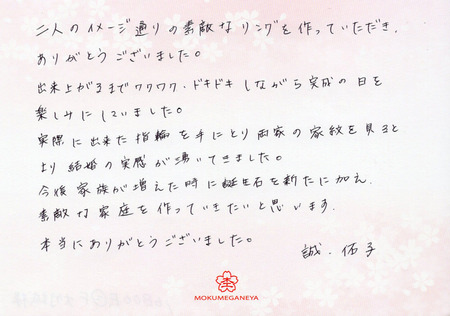 二人のイメージ通りの素敵なリングを作っていただき、
ありがとうございました。
出来上がるまでワクワク・ドキドキしながら完成の日を
楽しみにしていました。
実際に出来た指輪を手にとり両家の家紋を見ると
より結婚の実感が湧いてきました。
今後家族が増えた時に誕生石を新たに加え、
素敵な家庭を作っていきたいと思います。
本当にありがとうございました。
誠・佑子
MOKUMEGANEYA